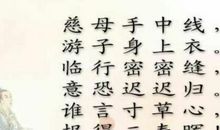 慈母手中线，
游子身上衣。
临行密密缝，
意恐迟迟归。
谁言寸草心，